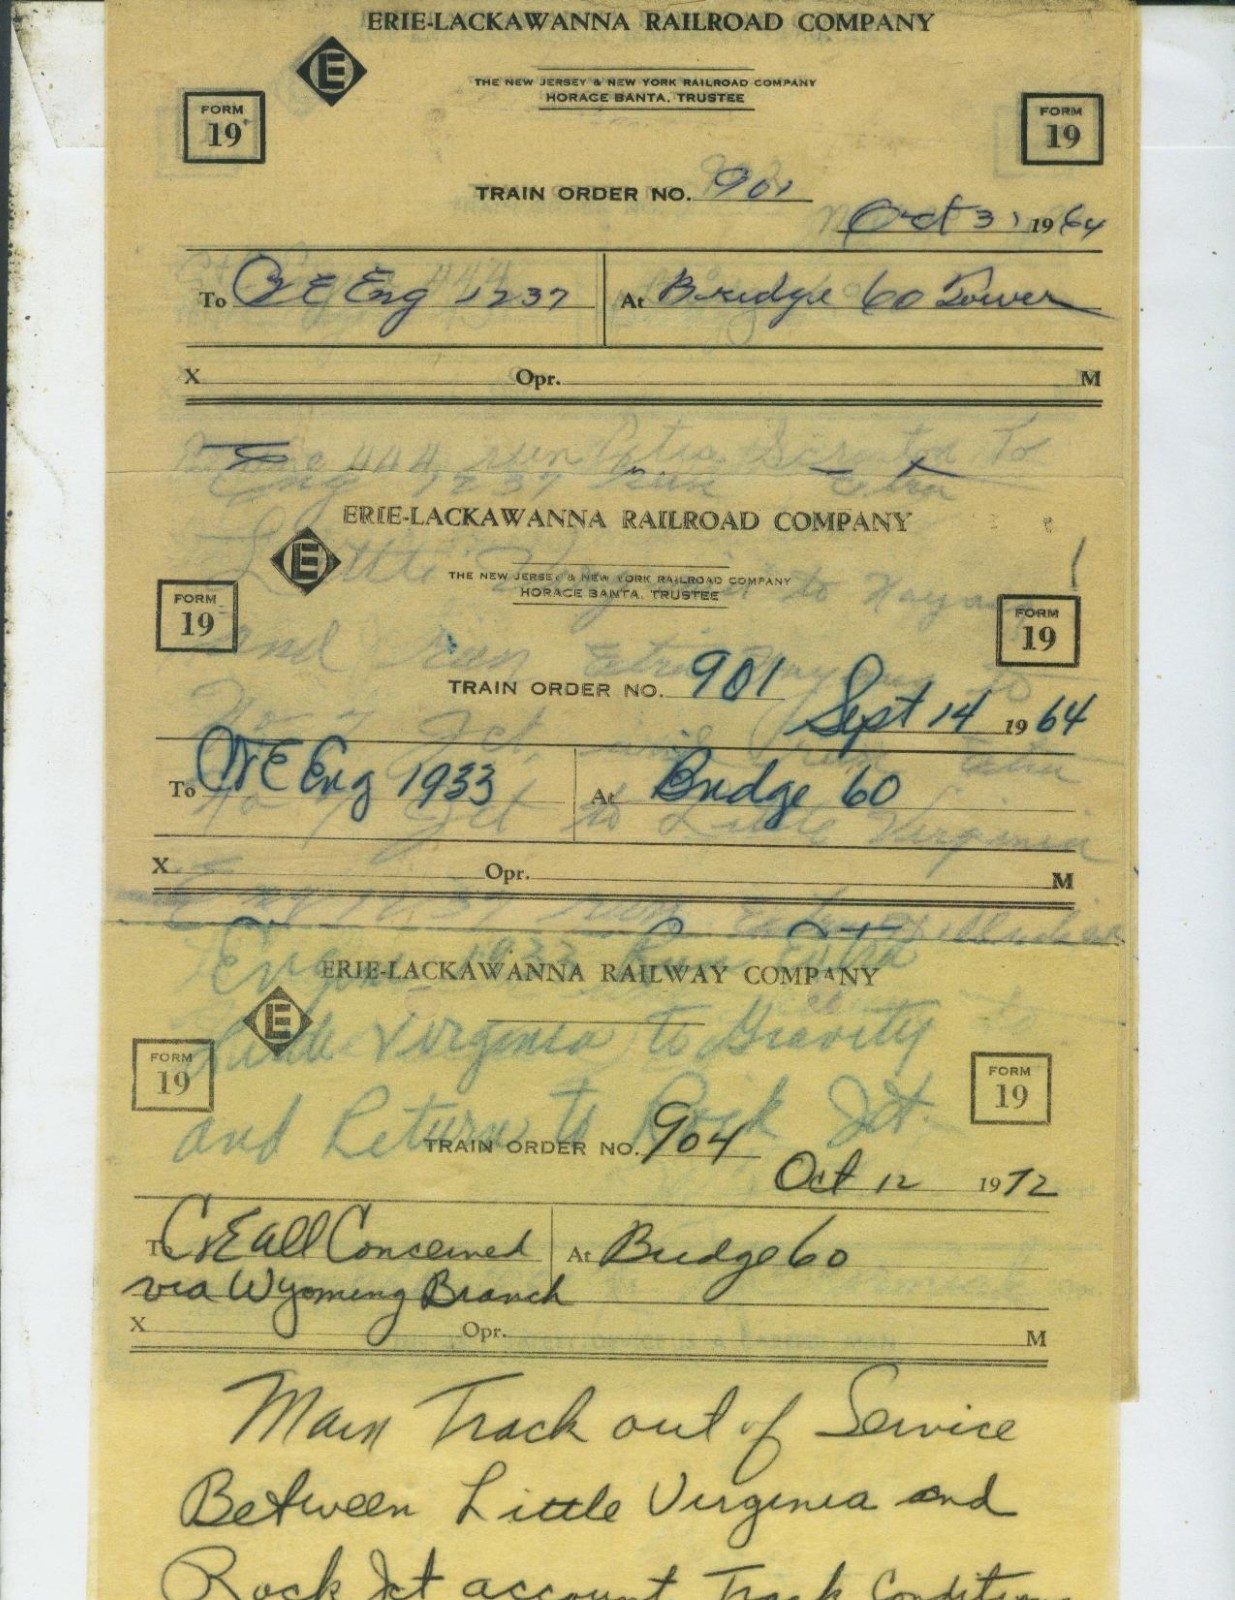 ERIE-LACKAWANNA RAILROAD COMPANY
E
THE NEW JERSEY & NEW YORK RAILROAD COMPANY
HORACE BANTA, TRUSTEE
FORM 19
FORM 19
TRAIN ORDER NO. 901
Oct 31 1964
To C&E Eng 1237 At Bridge 60 Tower
X Opr. M
444 run Extra Scranton To
Eng 1237 run Extra
ERIE-LACKAWANNA RAILROAD COMPANY
E
Little Virginia to
THE NEW JERSEY & NEW YORK RAILROAD COMPANY
HORACE BANTA, TRUSTEE
FORM 19
FORM 19
and run Extra to
TRAIN ORDER NO. 901
Sept 14 1964
Jct. and run Extra
To C&E Eng 1933 At Bridge 60
Jct to Little Virginia
X Opr. M
Eng 1237 run
Engine 1933 Run Extra
ERIE-LACKAWANNA RAILWAY COMPANY
E
Little Virginia to Gravity
FORM 19
FORM 19
and Return to Rock Jct.
TRAIN ORDER NO. 904
Oct 12 1972
To C&E all Concerned At Bridge 60
via Wyoming Branch
X Opr. M
Main Track out of Service
Between Little Virginia and
Rock Jct account Track Conditions